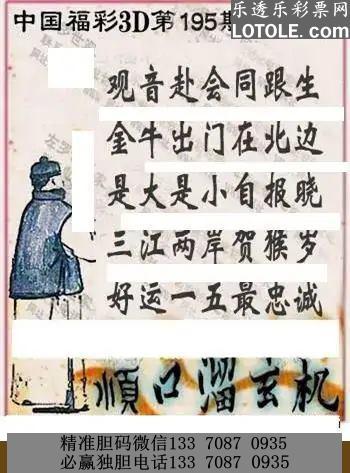 中国福彩3D第195期
乐透乐彩票网
LOTOLE.COM
观音赴会同跟生
金牛出门在北边
是大是小自报晓
三江两岸贺猴岁
好运一五最忠诚
順口溜玄机
精准胆码微信133 7087 0935
必赢独胆电话133 7087 0935